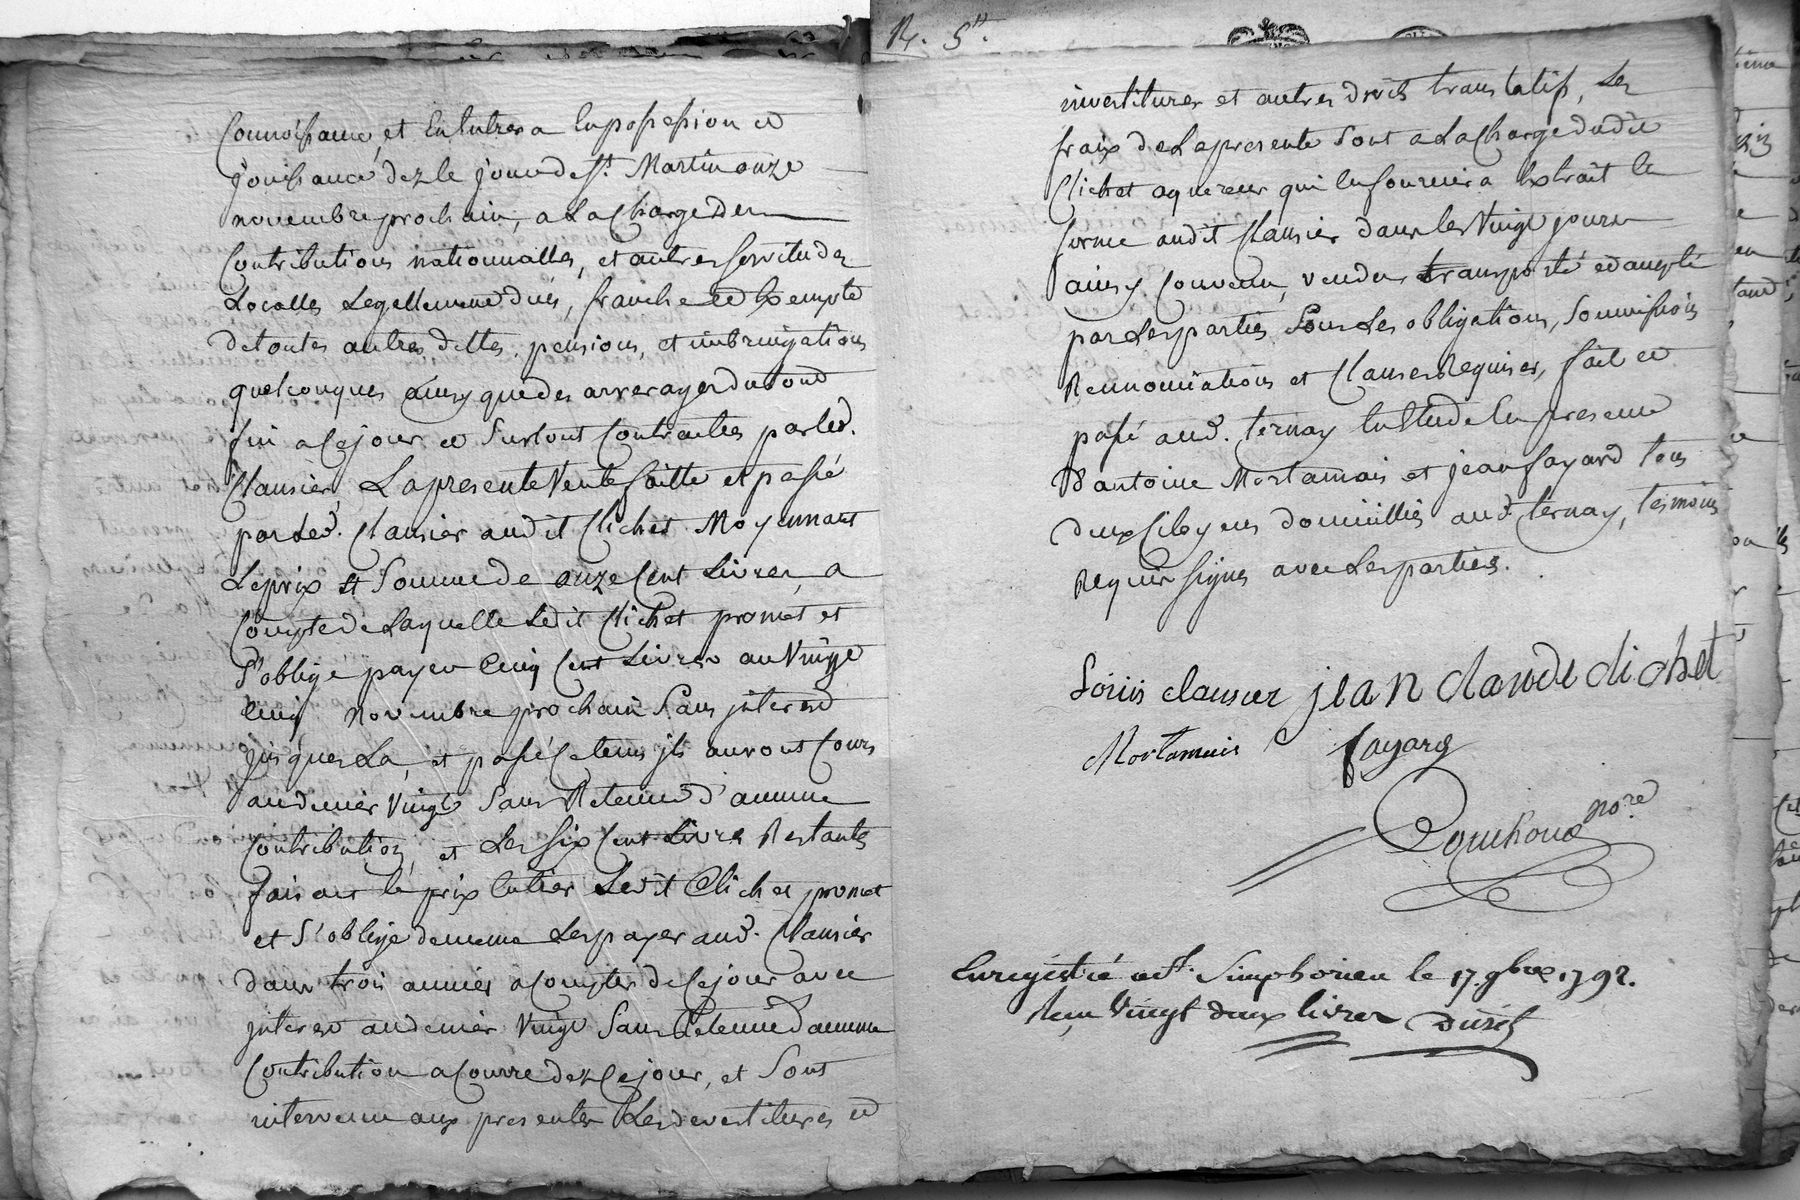 Connoissance, et Entrera En possession et
jouissance dez le jour de St. Martin onze
novembre prochain, a La Charge des
Contributions nationnalles, et autres servitudes
Localles Legallement dues, franche et Exempte
de toutes autres dettes, pensions, et imbringations
quelconques ainsy que des arrerages du tout
fin a Ce jour et surtout Contractés par led.
Clausier, La presente Vente faitte et passé
par led. Clausier audit Clichet Moyennant
Le prix et somme de onze Cent Livres, a
Compte de Laquelle Ledit Clichet promet et
s'oblige payer Cinq Cent Livres au Vingt
Cinq novembre prochain sans interest
jusques La, et passé Ce tems ils auront Cours
au denier Vingt sans Retenue d'aucune
Contribution, et Les six Cent Livres Restants
faisant le prix Entier Ledit Clichet promet
et s'oblige de meme Les payer aud. Clausier
dans trois années à Compter de Ce jour avec
interest au denier Vingt sans Retenue d'aucune
Contribution a Courre dez Ce jour, et sont
intervenu aux presentes Les devestitures et
R. 5
investitures et autres droits translatifs, Les
fraix de La presente sont a La Charge dudit
Clichet aquereur qui En fournira Extrait En
forme audit Clausier dans les Vingt jours
ainsy Convenu, vendu transporté et accepté
par Les parties sous Les obligations, soumissions
Rennonciations et Clauses Requises, fait et
passé aud. ternay En Etude En presence
d'antoine Mortamais et jean fayard tous
deux Citoyens domicilliés aud. ternay, temoins
Requis signes avec Les parties.
Louis clausier jean claude clichet
Mortamais fayard
nore
Enregistré a St. Simphorien le 17. 9bre 1792.
Recu Vingt deux livres